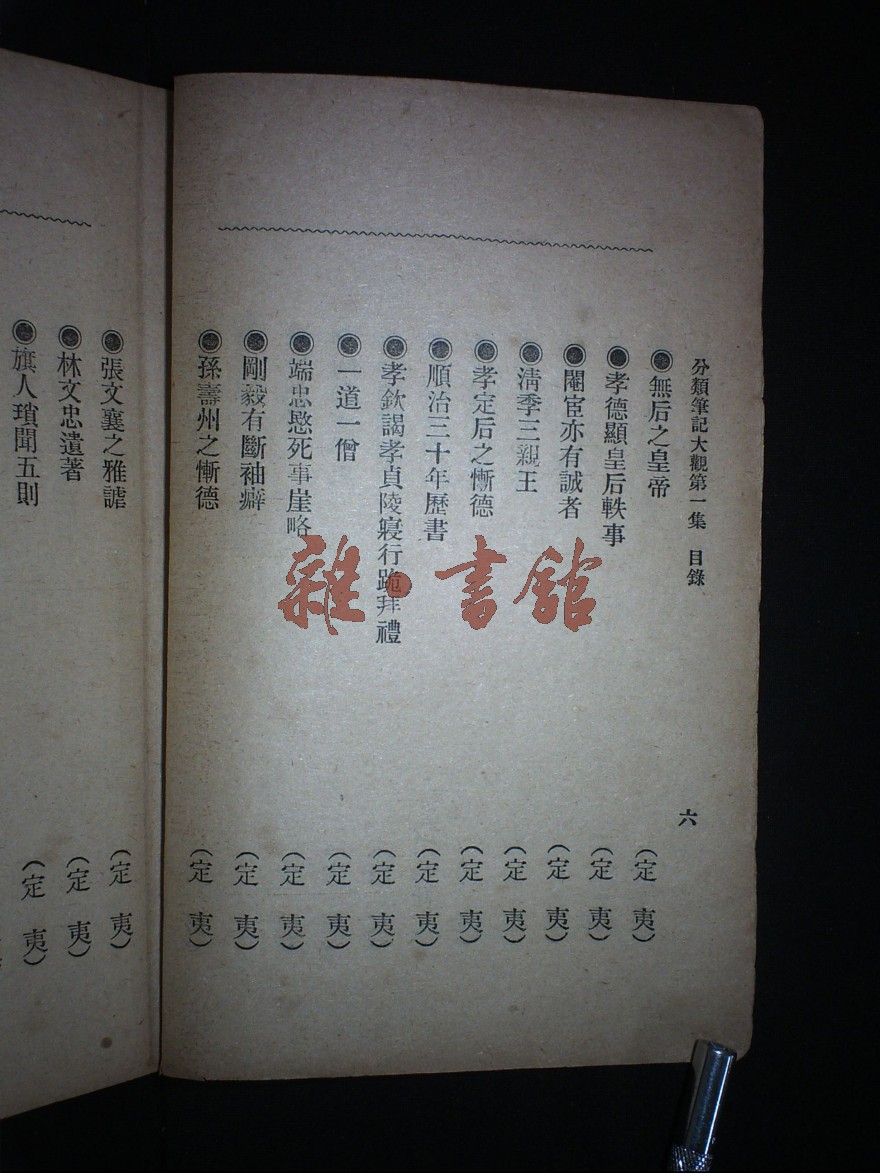 分類筆記大觀第一集 目錄 六
◉無后之皇帝 （定夷）
◉孝德顯皇后軼事 （定夷）
◉閹宦亦有誠者 （定夷）
◉淸季三親王 （定夷）
◉孝定后之慚德 （定夷）
◉順治三十年歷書 （定夷）
◉孝欽謁孝貞陵寢行跪拜禮 （定夷）
◉一道一僧 （定夷）
◉端忠愍死事崖略 （定夷）
◉剛毅有斷袖癖 （定夷）
◉孫壽州之慚德 （定夷）
◉張文襄之雅謔 （定夷）
◉林文忠遺著 （定夷）
◉旗人瑣聞五則 （定夷）
雜·書館